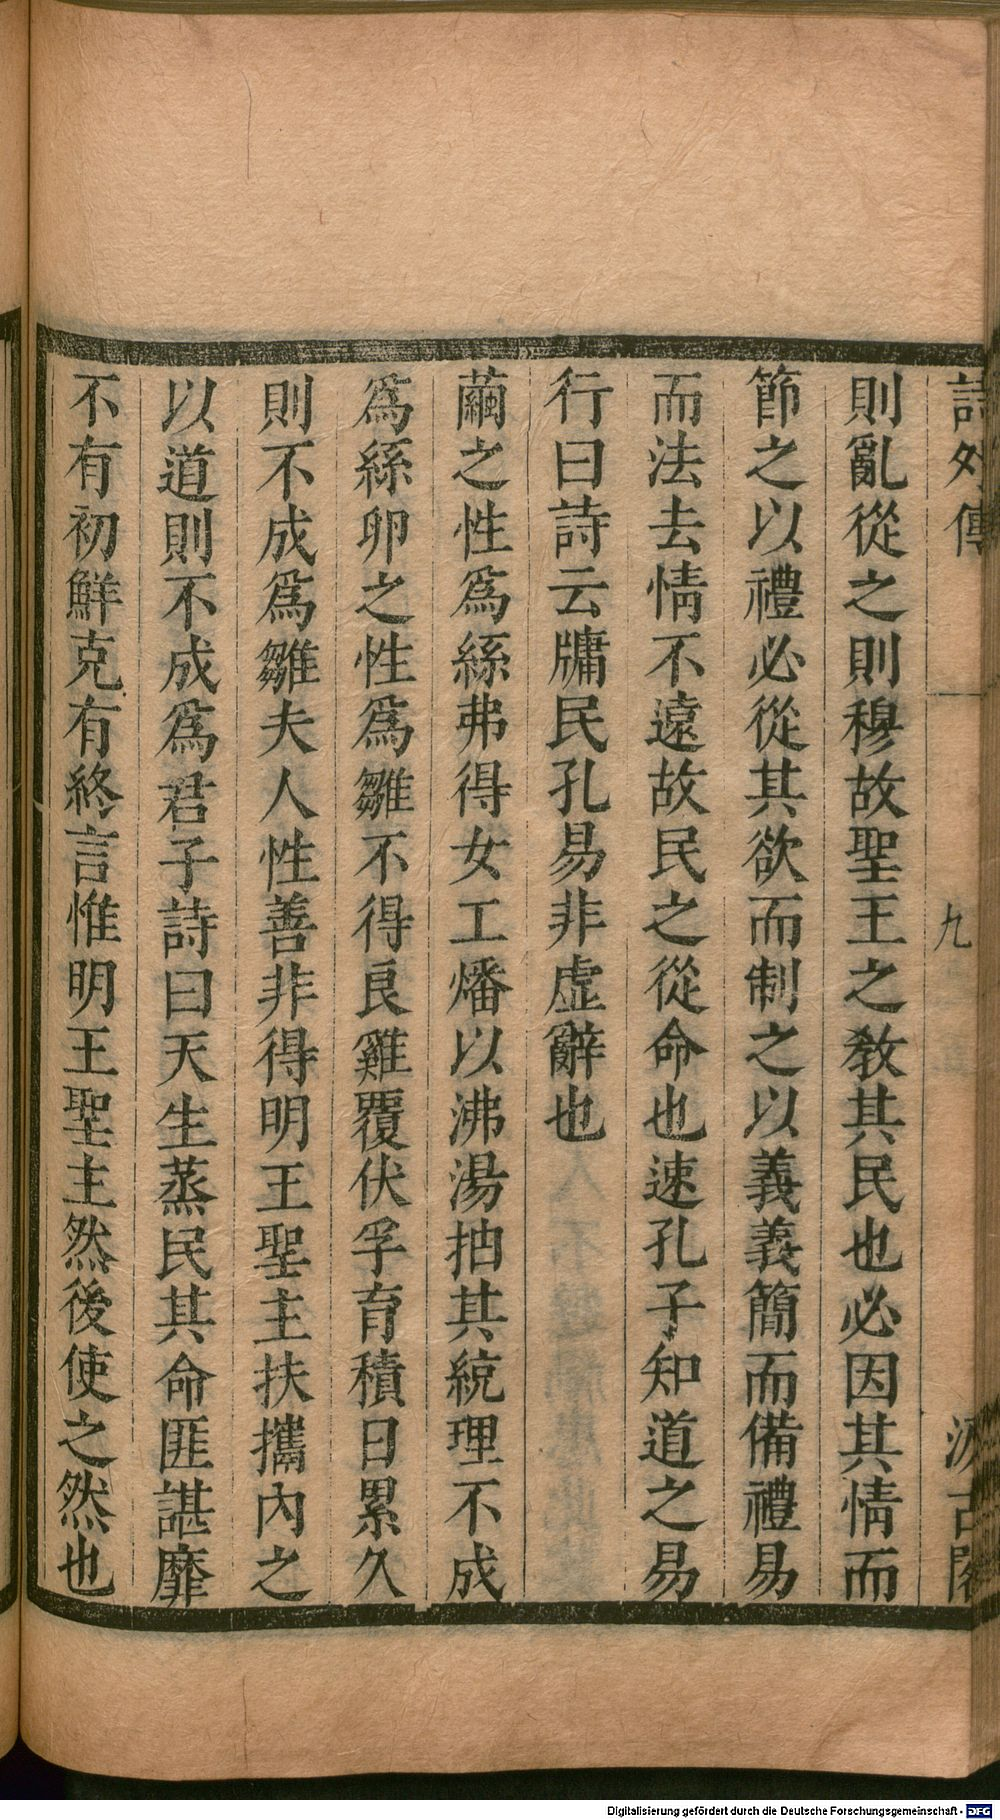 詩外傳 九 汲古閣
則亂從之則穆故聖王之教其民也必因其情而
節之以禮必從其欲而制之以義義簡而備禮易
而法去情不遠故民之從命也速孔子知道之易
行曰詩云牗民孔易非虛辭也
繭之性爲絲弗得女工燔以沸湯抽其統理不成
爲絲卵之性爲雛不得良雞覆伏孚育積日累久
則不成爲雛夫人性善非得明王聖主扶攜內之
以道則不成爲君子詩曰天生蒸民其命匪諶靡
不有初鮮克有終言惟明王聖主然後使之然也
Digitalisierung gefördert durch die Deutsche Forschungsgemeinschaft - DFG